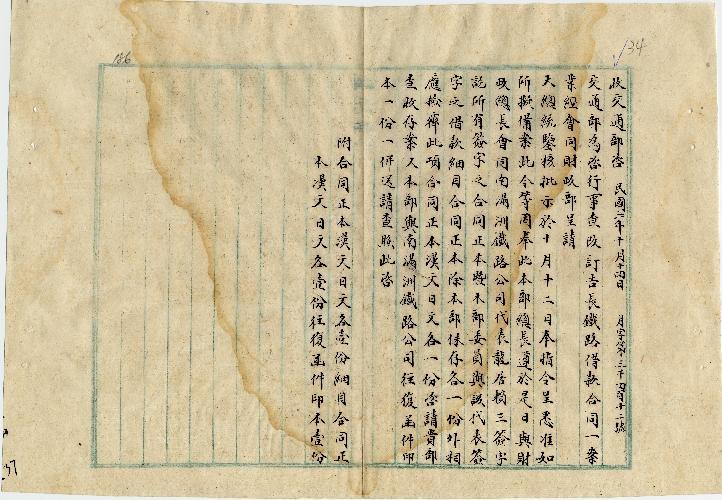 34
186
收交通部咨　民國六年十月十四日　月字第三千四百十二號
交通部為咨行事查改訂吉長鐵路借款合同一案
業經會同財政部呈請
大總統鑒核批示於十月十二日奉指令呈悉准如
所擬備案此令等因奉此本部總長遵於是日與財
政總長會同南滿洲鐵路公司代表龍居賴三簽字
訖所有簽字之合同正本暨本部委員與該代表簽
字之借款細目合同正本除本部保存各一份外相
應檢齊此項合同正本漢文日文各一份咨請貴部
查收存案又本部與南滿洲鐵路公司往復函件印
本一份一併送請查照此咨
附合同正本漢文日文各壹份細目合同正
本漢文日文各壹份往復函件印本壹份
37